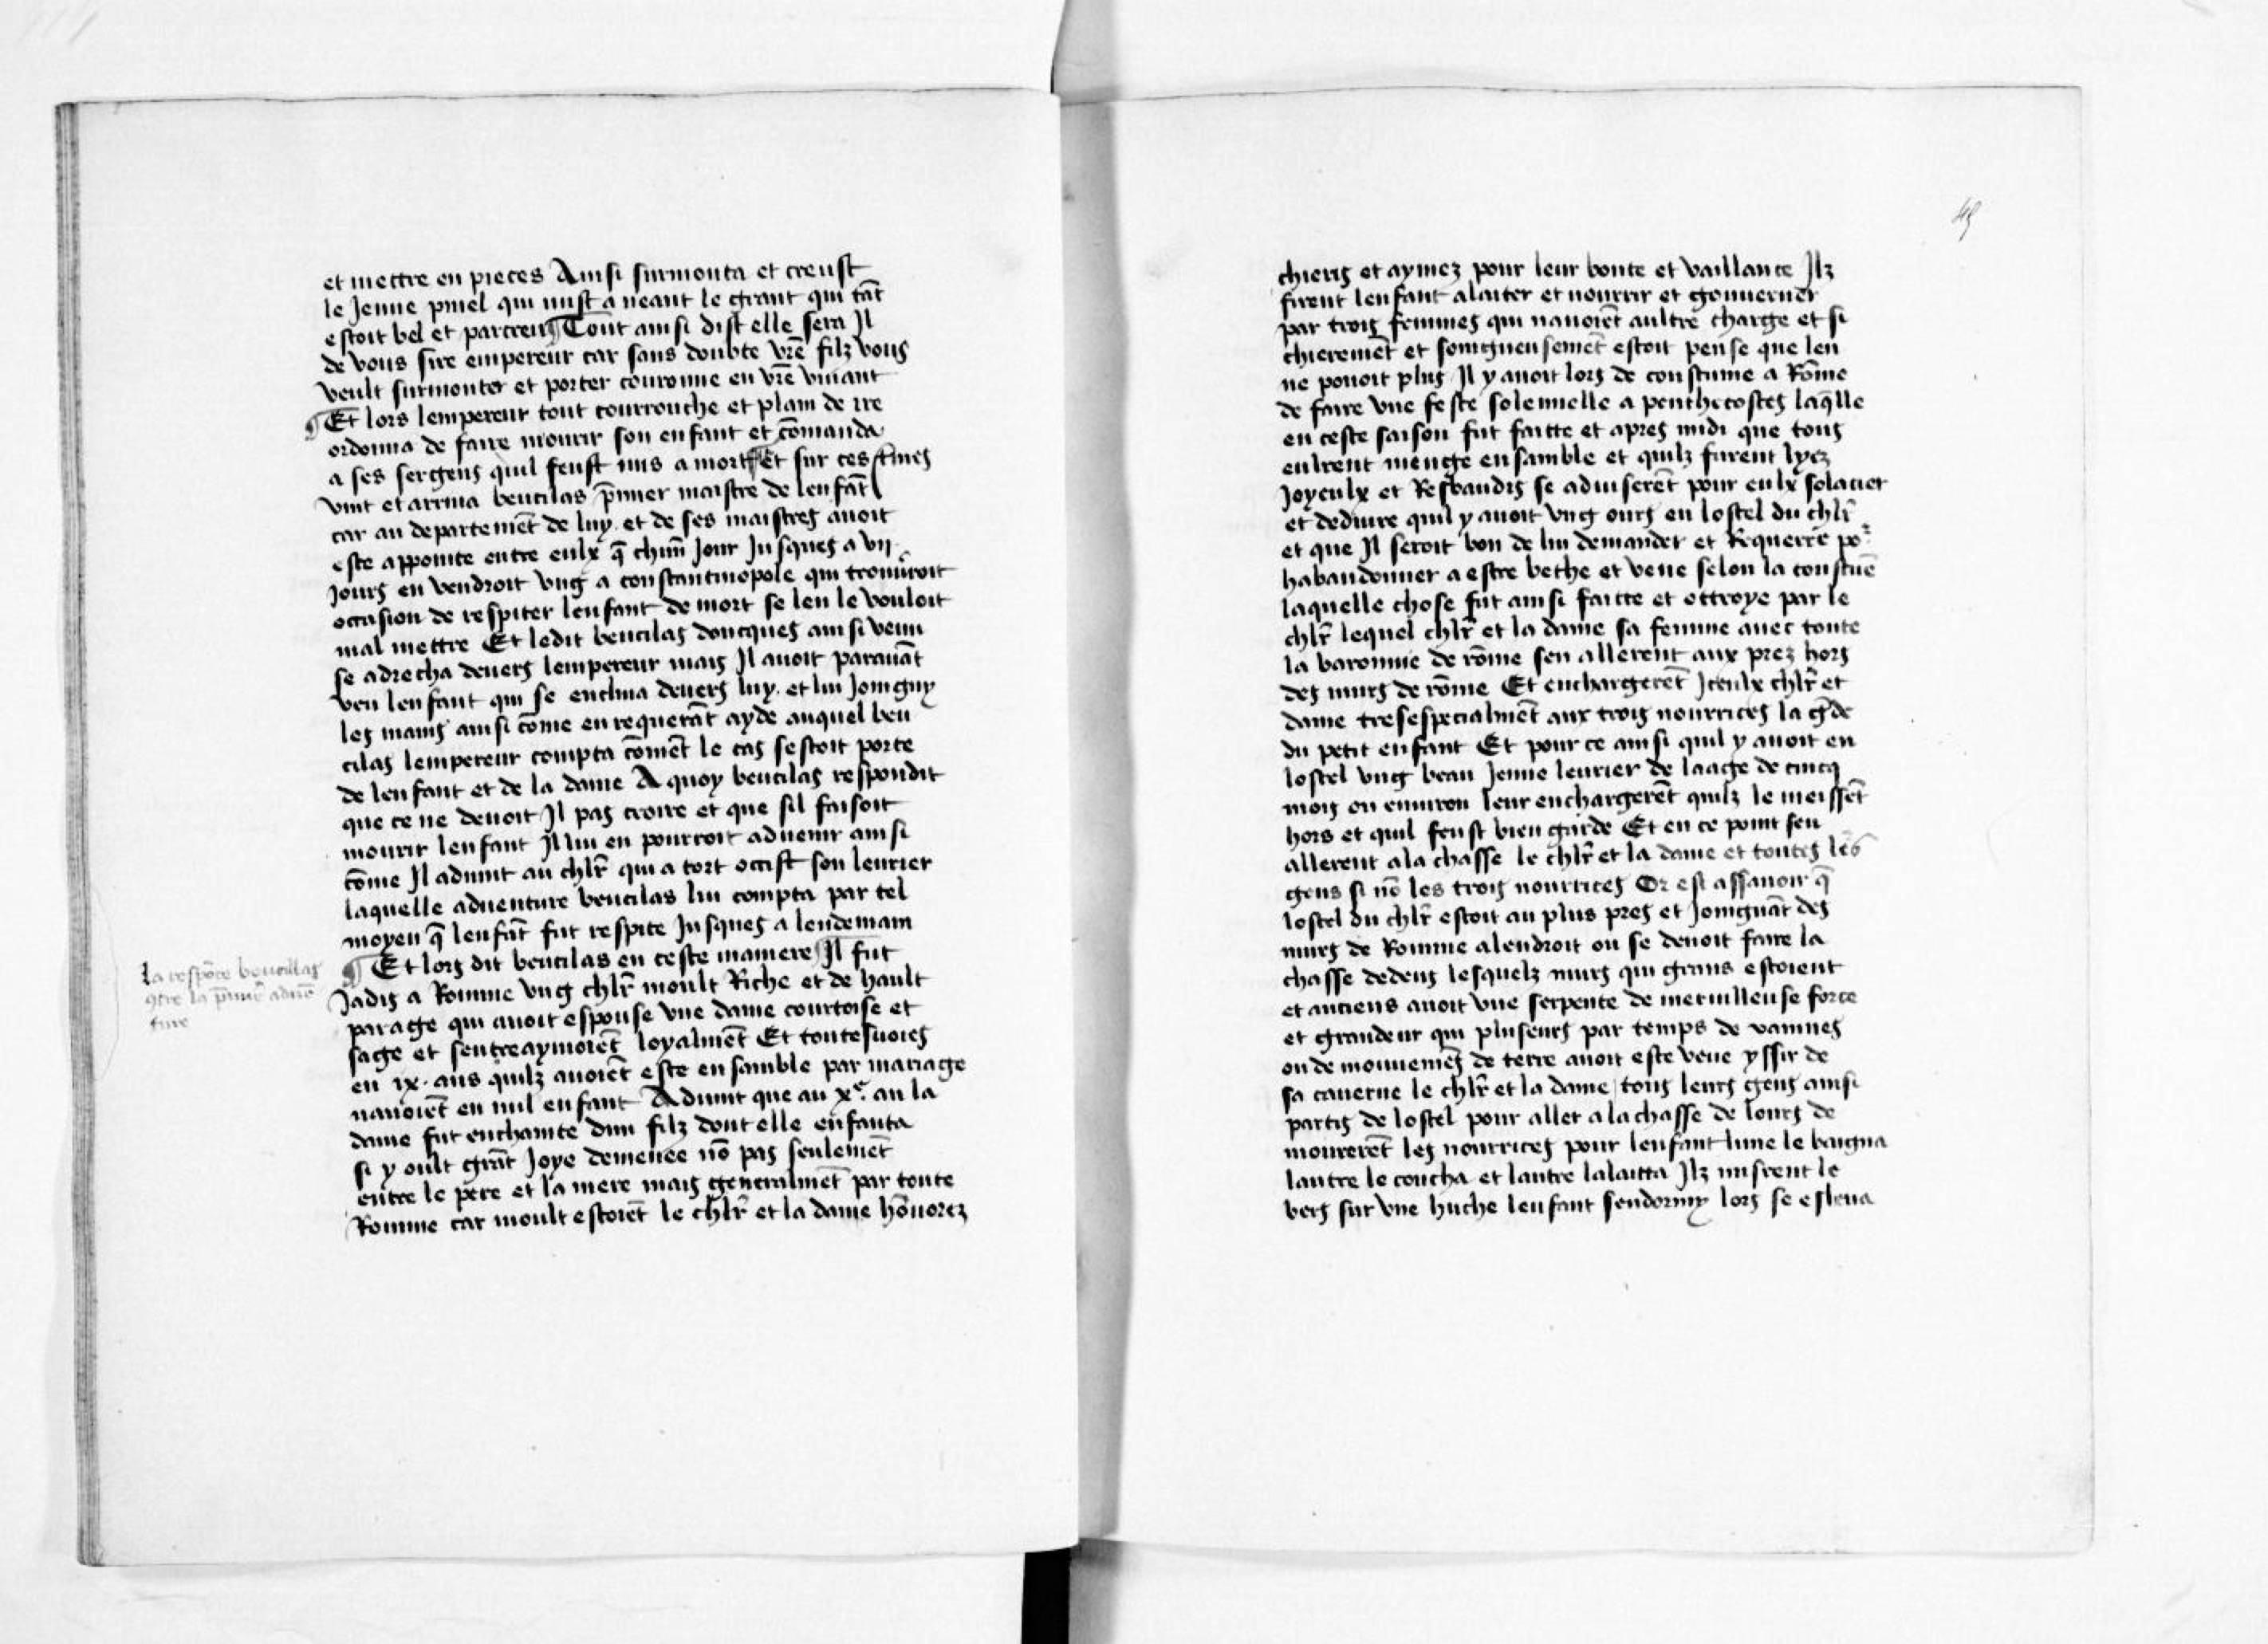 et mettre en pieces Ainsi surmonta et creust
le Jenne pinel qui mist a neant le grant qui tãt
estoit bel et parcreu ¶ Tout ainsi dist elle sera Il
de vous sire empereur car sans doubte vr̃e filz vous
veult surmonter et porter couronne en vr̃e viuant
¶ Et lors lempereur tout courrouche et plain de ire
ordonna de faire mourir son enfant et cõmanda
a ses sergens quil feust mis a mort ¶ Et sur ces t̃mes
vint et arriua bencilas p̃mier maistre de lenfãt
car au departemẽt de luy et de ses maistres auoit
este appointe entre eulx q̃ chũn Jour Jusques a vij
Jours en vendroit vng a constantinopole qui trouũroit
occasion de respiter lenfant de mort se len le vouloit
mal mettre Et ledit bencilas doncques ainsi venu
se adrecha deuers lempereur mais Il auoit parauãt
veu lenfant qui se enclina deuers luy et lui Joingny
les mains ainsi cõme en requerãt ayde auquel ben
cilas lempereur compta cõmẽt le cas sestoit porte
de lenfant et de la dame A quoy bencilas respondit
que ce ne deuoit Il pas croire et que sil faisoit
mourir lenfant Il lui en pourroit aduenir ainsi
cõme Il aduint au chlr̃ qui a tort occist son leurier
laquelle aduenture bencilas lui compta par tel
moyen q̃ lenfãt fut respite Jusques a lendemain
¶ Et lors dit bencilas en ceste maniere Il fut
Jadis a Romme vng chlr̃ moult Riche et de hault
parage qui auoit espouse vne dame courtoise et
sage et sentreaymoiẽt loyalmẽt Et toutesuoies
en ix. ans quilz auoiẽt este ensamble par mariage
nauoiẽt eu nul enfant Aduint que au xᵉ. an la
dame fut enchainte dun filz dont elle enfanta
si y oult grãt Joye demenee nõ pas seulemẽt
entre le pere et la mere mais generalmẽt par toute
Romme car moult estoiẽt le chlr̃ et la dame hõnorez
la respõce bencillas
9tre la p̃mier̃ aduẽ
ture
49
chieris et aymez pour leur bonte et vaillance Ilz
firent lenfant alaiter et nourrir et gouuerner
par trois femmes qui nauoiẽt aultre charge et si
chieremẽt et soingneusemẽt estoit pense que len
ne pouoit plus Il y auoit lors de coustume a Rõme
de faire vne feste solennelle a penthecostes laq̃lle
en ceste saison fut faitte et apres midi que tous
eulrent menge ensamble et quilz furent lyez
Joyeulx et Resbaudis se aduiserẽt pour eulx solacier
et deduire quil y auoit vng ours en lostel du chlr̃
et que Il seroit bon de lui demander et Requerre poᵘʳ
habandonner a estre bethe et vene selon la coustũe
laquelle chose fut ainsi faitte et ottroye par le
chlr̃ lequel chlr̃ et la dame sa femme auec toute
la baronnie de rõme sen allerent aux prez hors
des murs de rõme Et enchargerẽt Iceulx chlr̃ et
dame tresespecialmẽt aux trois nourrices la g̃de
du petit enfant Et pour ce ainsi quil y auoit en
lostel vng beau Jenne leurier de laage de cincq
mois ou enuiron leur enchargerẽt quilz le meissẽt
hors et quil feust bien garde Et en ce point sen
allerent a la chasse le chlr̃ et la dame et toutes les
gens si nõ les trois nourrices Or est assauoir q̃
lostel du chlr̃ estoit au plus pres et Joingnãt des
murs de Romme alendroit ou se deuoit faire la
chasse dedens lesquelz murs qui grans estoient
et anciens auoit vne serpente de merueilleuse force
et grandeur qui pluseurs par temps de vaimnes
ou de mouuemẽs de terre auoit este veue yssir de
sa cauerne le chlr̃ et la dame tous leurs gens ainsi
partis de lostel pour aller a la chasse de lours de
mourerẽt les nourrices pour lenfant lune le baigna
lautre le coucha et lautre lalaitta Ilz misrent le
bers sur vne huche lenfant sendormy lors se esleua